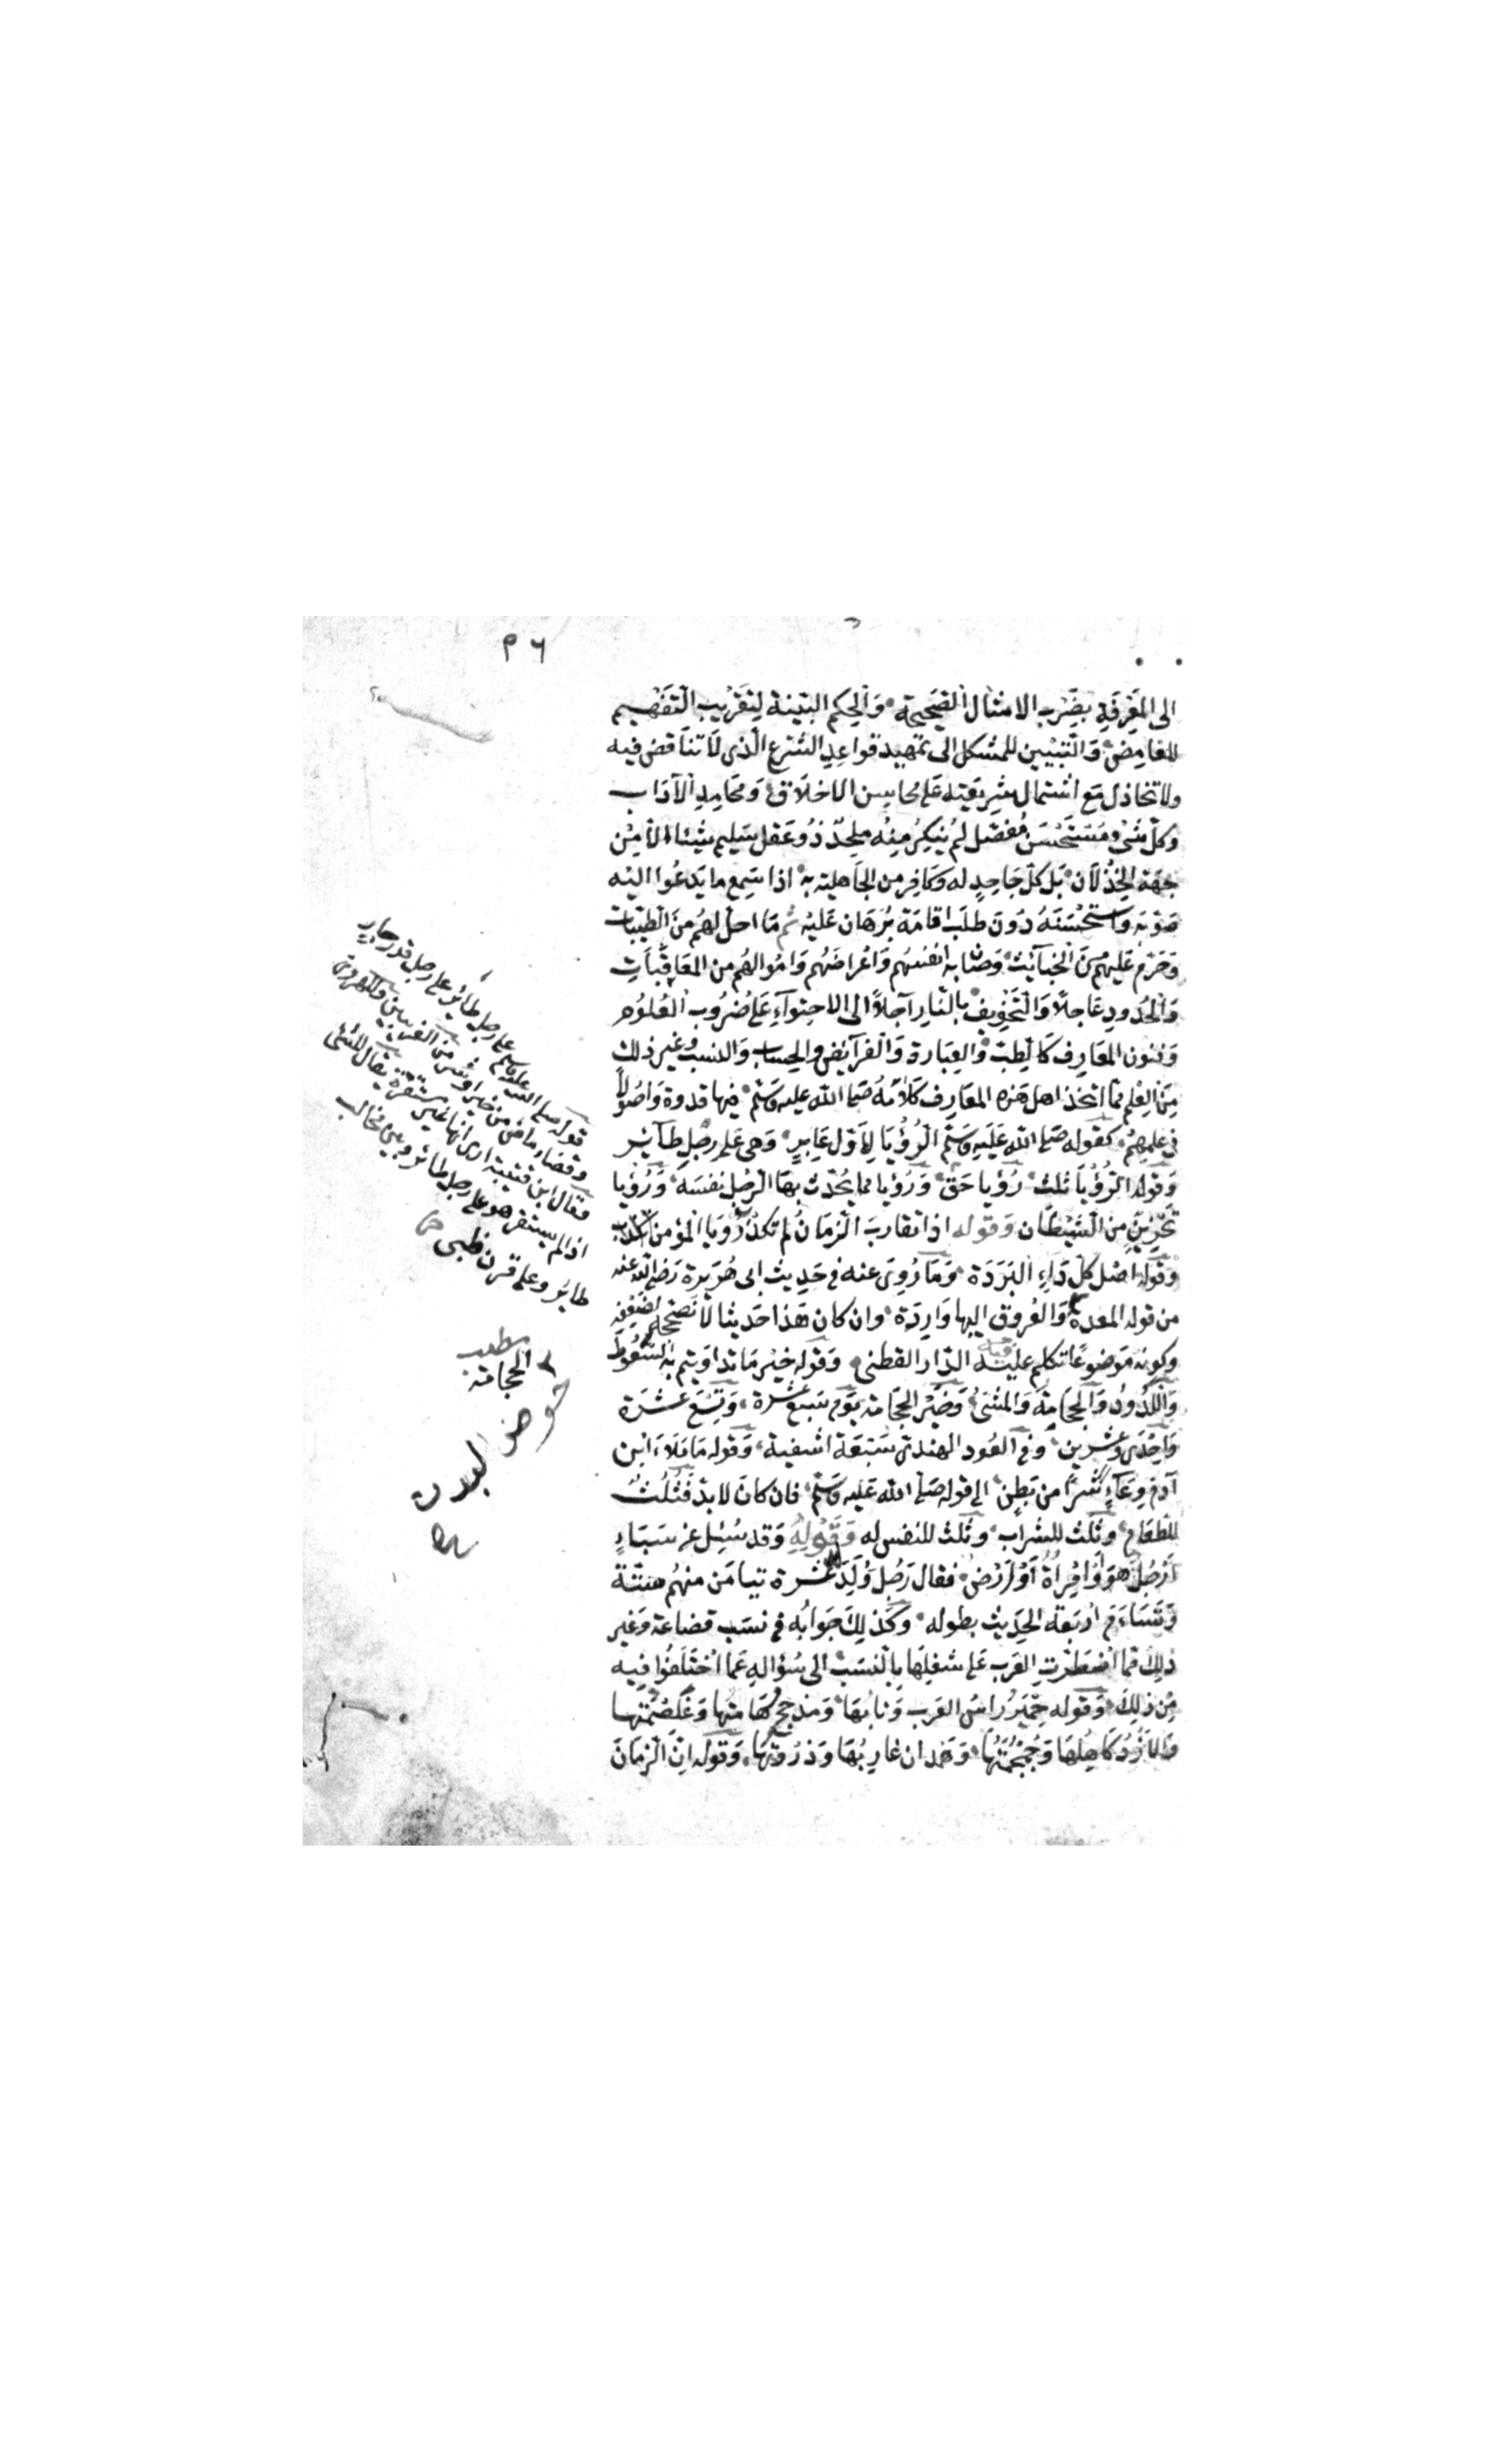 ٩٦
الى المَعْرِفَةِ بِضَرْبِ الامثال الصَّحيحة وَالحِكَم البَيِّنة لِتَقْريب التَّفْهِيم
للغامِض وَالتَّبْيين للمشكل الى تمهيد قواعِدِ الشَّرع الَّذى لَا تناقض فيه
ولا تخاذل مَعَ اشتمال شريعَتِه عَلى محاسِن الاخلَاق وَمَحَامِدِ الآدَاب
وَكلّ شىْءٍ مُسْتَحْسَن مُفضَّل لم يُنكِرْ مِنْه مُلحِدٌ ذُو عَقل سَليم شيئا الّا مِنْ
جهة الخِذْلَان بَل كلّ جَاحِدٍ له وَكافِرٍ من الجَاهلية به اذا سَمع ما يَدعُوا اليْه
صَوَّبَه وَاستَحْسَنَهُ دُونَ طَلَب اقامَة بُرْهَان عَليْه ثُمَّ مَا احلّ لهُم مِنَ الطيّبات
وَحَرّم عَليهِم مِنَ الخَبَائِث وَصَانَ به انفسَهُم وَاعْرَاضَهُم وَامْوَالهُم من المعَاقبَاتِ
وَالحُدودِ عَاجلًا وَالتَّخويف بِالنَّار آجلًا الى الاحتِوَآءِ عَلى ضُرُوب العُلوُم
وَفنُون المعَارِف كالطِبّ وَالعِبَارة وَالفرآئِض وَالحِسَاب وَالنسَب وَغير ذلك
مِنَ العِلْم مما اتخذ اهل هَذه المعَارِف كلامَهُ صَلى الله عليه وَسَلم فيها قدوة وَاصُولًا
فى علمِهِم كقوله صَلى الله عَلَيهِ وَسَلَّم الرُّؤيَا لِاَوَّل عَابِرٍ وَهى عَلى رِجْلِ طآئِر
وَقوله الرُّؤيَا ثلث رُؤيا حَقّ وَرُؤيا مما يُحَدّث بهَا الرَّجُل نفسَهُ وَرُؤيا
تَحْزِينٍ مِنَ الشَّيْطَان وَقوله اذا تقاربَ الزمَانُ لم تكَدْ رُؤيَا المؤمن تكذب
وَقوله اصْل كلّ دَاءٍ البَرَدَة وَمَا رُوِىَ عنه فى حَديث ابى هُرَيرة رَضى الله عنه
من قوله المعدة حوض البدن وَالعُروق اليها وَارِدَة وان كان هَذا حَديثا لَا نُصَحّحُه لضعفِه
وَكونه مَوضوعًا تكلم عليه الدَّارَ القطنى وَقوله خَيْر مَا تداوَيتم به السَّعُوط
وَاللَّدُودُ وَالحِجَامَةُ وَالمَشِىُّ وَخَيْر الحِجَامة يَوْم سَبعَ عَشرة وَتِسْعَ عَشرَة
وَاحْدَى وَعِشرين وَفى العُود الهندى سَبعَة اشفية وَقوله مَا مَلَأَ ابن
آدَمَ وِعَآءً شَرًّا من بَطن الى قوله صَلى الله عَليه وَسلم فان كانَ لا بدّ فَثُلُثٌ
للطعَام وثُلث للشراب وثُلث للنفس له وَقَوْلِهِ وَقد سُئِل عَن سَبَاءٍ
اَرَجُلٌ هُوَ اَوْ امْرَأَةٌ اَوْ اَرْضٌ فقال رَجُل وُلِدَ له عَشَرة تيامَن منهُم سِتَّة
وَتشَاءَمَ اَرْبَعَة الحَديث بطوله وَكَذلِكَ جَوَابُه فى نسَب قضاعة وَغير
ذلِكَ مما اضطرّتِ العَرب عَلى شغلِهَا بِالنسَبْ الى سُؤالِهِ عَما اختَلَفُوا فيه
مِن ذلِكَ وَقوله حِمْيَرُ رَاسُ العَرب وَنابُهَا وَمَذحِجُ هَامَتُهَا وَغَلصَمَتُهَا
وَالازْدُ كَاهِلُهَا وَجُمْجُمَتُهَا وَهَمْدان غارِبُهَا وَذرْوتُهَا وَقَوْله اِنّ الزَمَانَ
قوله صلى الله عليه وسلم على رجل طائر على رجل قدر جار
وقضاء ماض من خير او شر من الغريبين للهروى
فقال ابن قتيبة اراد انها غير مستقرة يقال للشئ
اذا لم يستقر هو على رجل طائر وبين مخالب
طائر وعلى قرن ظبى
مطلب
الحجامة
حوض البدن
صح